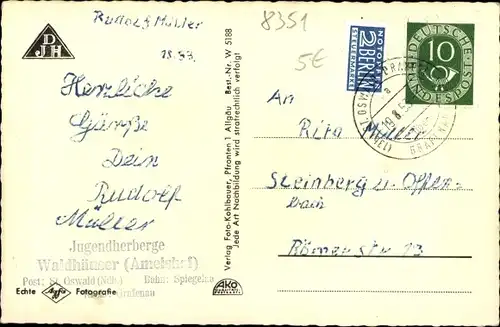 Rudolf Müller
8351
18.53.
5€
DJH
Herzliche
Grüße
Dein
Rudolf
Müller
Jugendherberge
Waldhäuser
Post: St. Oswald (Ndb.) Bahn: Spiegelau
Echte Agfa Fotografie
Verlag Foto-Kohlbauer, Pfronten 1 Allgäu Best.-Nr. W 5188
Jede Art Nachbildung wird strafrechtlich verfolgt
AKO
NOTOPFER
2 BERLIN
STEUERMARKE
DEUTSCHE
10
BUNDESPOST
An
Rita Müller
Steinberg ü. Offen-
bach
Römerstr. 13